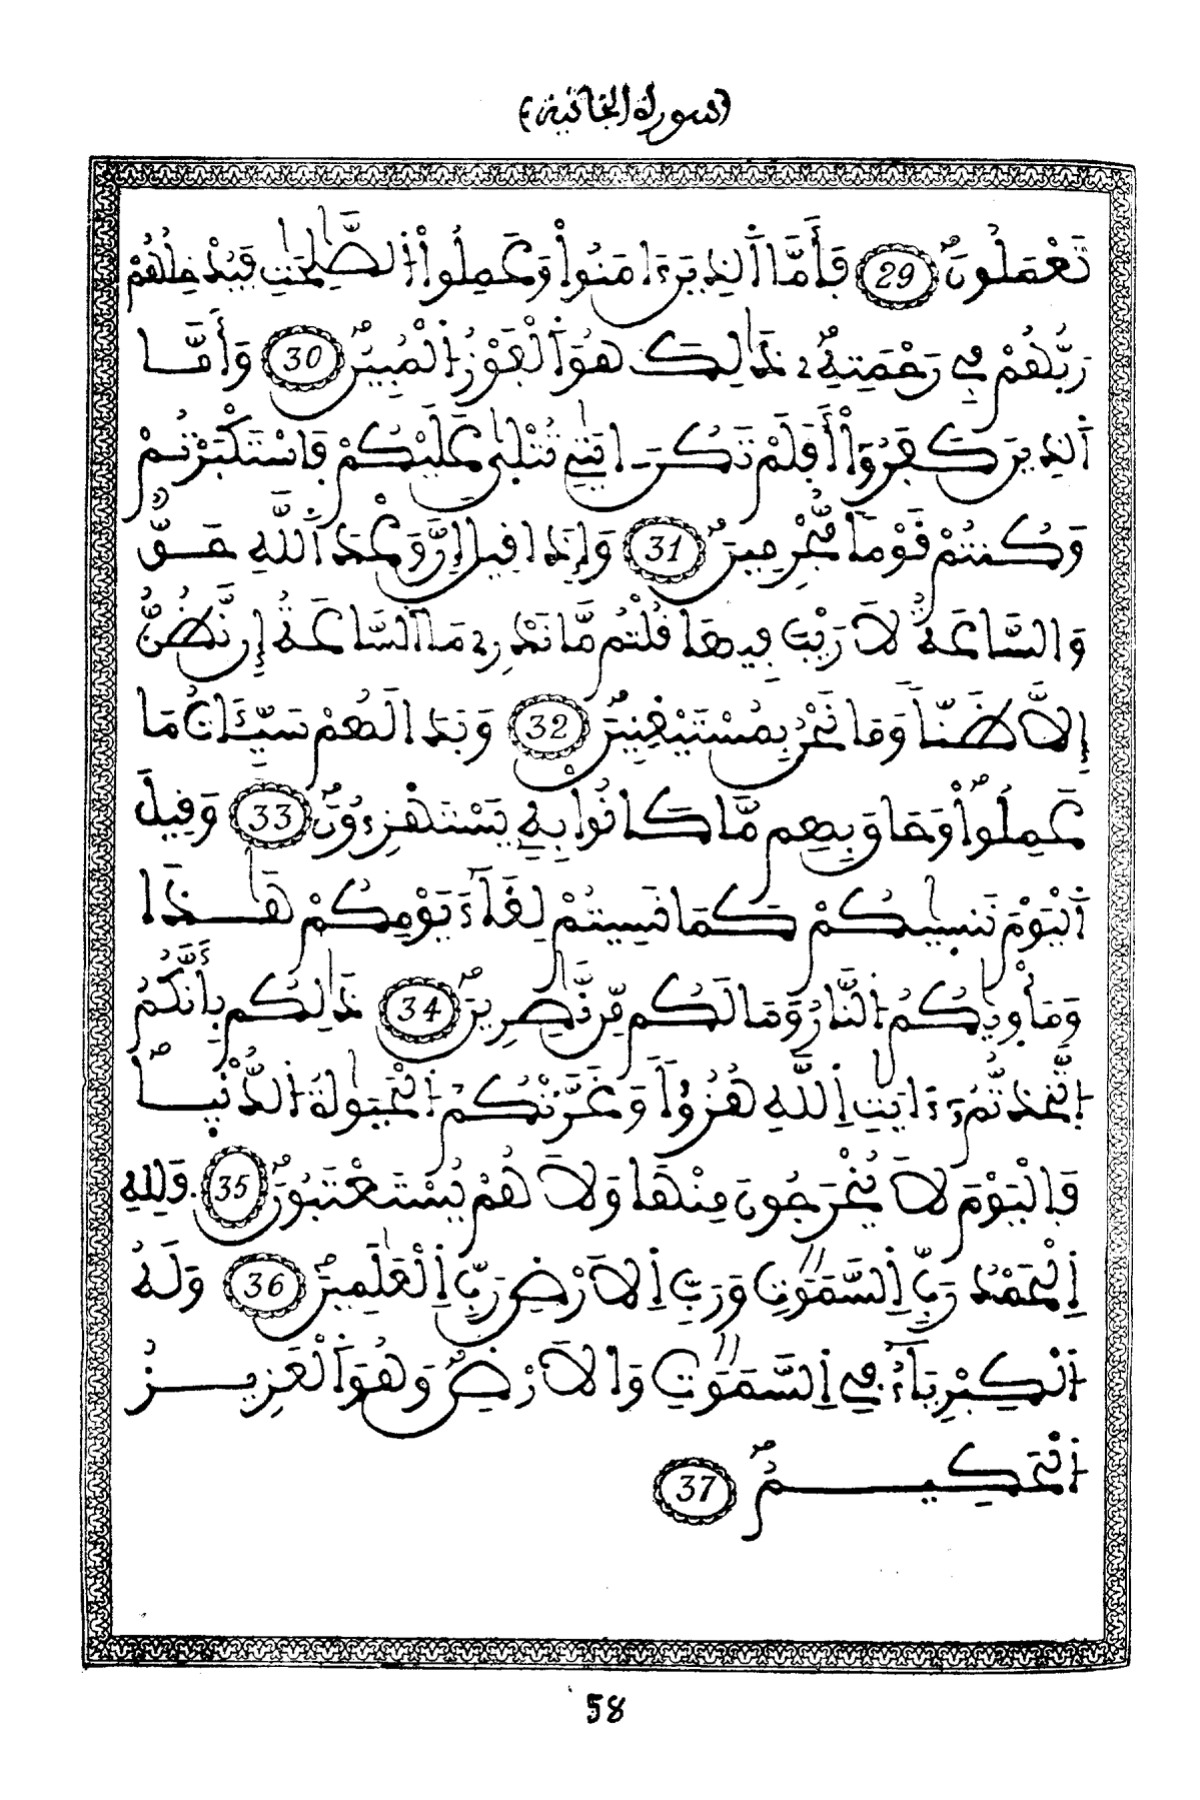 (سورة الجاثية)
تَعْمَلُونَ 29 فَأَمَّا اَ۬لذِينَ ءَامَنُواْ وَعَمِلُواْ اُ۬لصَّٰلِحَٰتِ فَيُدْخِلُهُمْ
رَبُّهُمْ فِي رَحْمَتِهِۦ ذَٰلِكَ هُوَ اَ۬لْفَوْزُ اُ۬لْمُبِينُ 30 وَأَمَّا
اَ۬لذِينَ كَفَرُواْ أَفَلَمْ تَكُنَ اٰيَٰتِي تُتْلَىٰ عَلَيْكُمْ فَاسْتَكْبَرْتُمْ
وَكُنتُمْ قَوْماً مُّجْرِمِينَ 31 وَإِذَا قِيلَ إِنَّ وَعْدَ اَ۬للَّهِ حَقٌّ
وَالسَّاعَةُ لَا رَيْبَ فِيهَا قُلْتُم مَّا نَدْرِے مَا اَ۬لسَّاعَةُ إِن نَّظُنُّ
إِلَّا ظَنّاً وَمَا نَحْنُ بِمُسْتَيْقِنِينَ 32 وَبَدَا لَهُمْ سَيِّـَٔاتُ مَا
عَمِلُواْ وَحَاقَ بِهِم مَّا كَانُواْ بِهِۦ يَسْتَهْزِءُونَ 33 وَقِيلَ
اَ۬لْيَوْمَ نَنسِيٰكُمْ كَمَا نَسِيتُمْ لِقَآءَ يَوْمِكُمْ هَٰذَا
وَمَأْوِيٰكُمُ اُ۬لنَّارُ وَمَا لَكُم مِّن نَّٰصِرِينَ 34 ذَٰلِكُم بِأَنَّكُمُ
اُ۪تَّخَذتُّمُۥٓ ءَايَٰتِ اِ۬للَّهِ هُزُؤاً وَغَرَّتْكُمُ اُ۬لْحَيَوٰةُ اُ۬لدُّنْيٜا
فَالْيَوْمَ لَا يُخْرَجُونَ مِنْهَا وَلَا هُمْ يُسْتَعْتَبُونَ 35 وَلِلهِ
اِ۬لْحَمْدُ رَبِّ اِ۬لسَّمَٰوَٰتِ وَرَبِّ اِ۬لَارْضِ رَبِّ اِ۬لْعَٰلَمِينَ 36 وَلَهُ
اُ۬لْكِبْرِيَآءُ فِي اِ۬لسَّمَٰوَٰتِ وَالَارْضِ وَهُوَ اَ۬لْعَزِيزُ
اُ۬لْحَكِيمُ 37
58